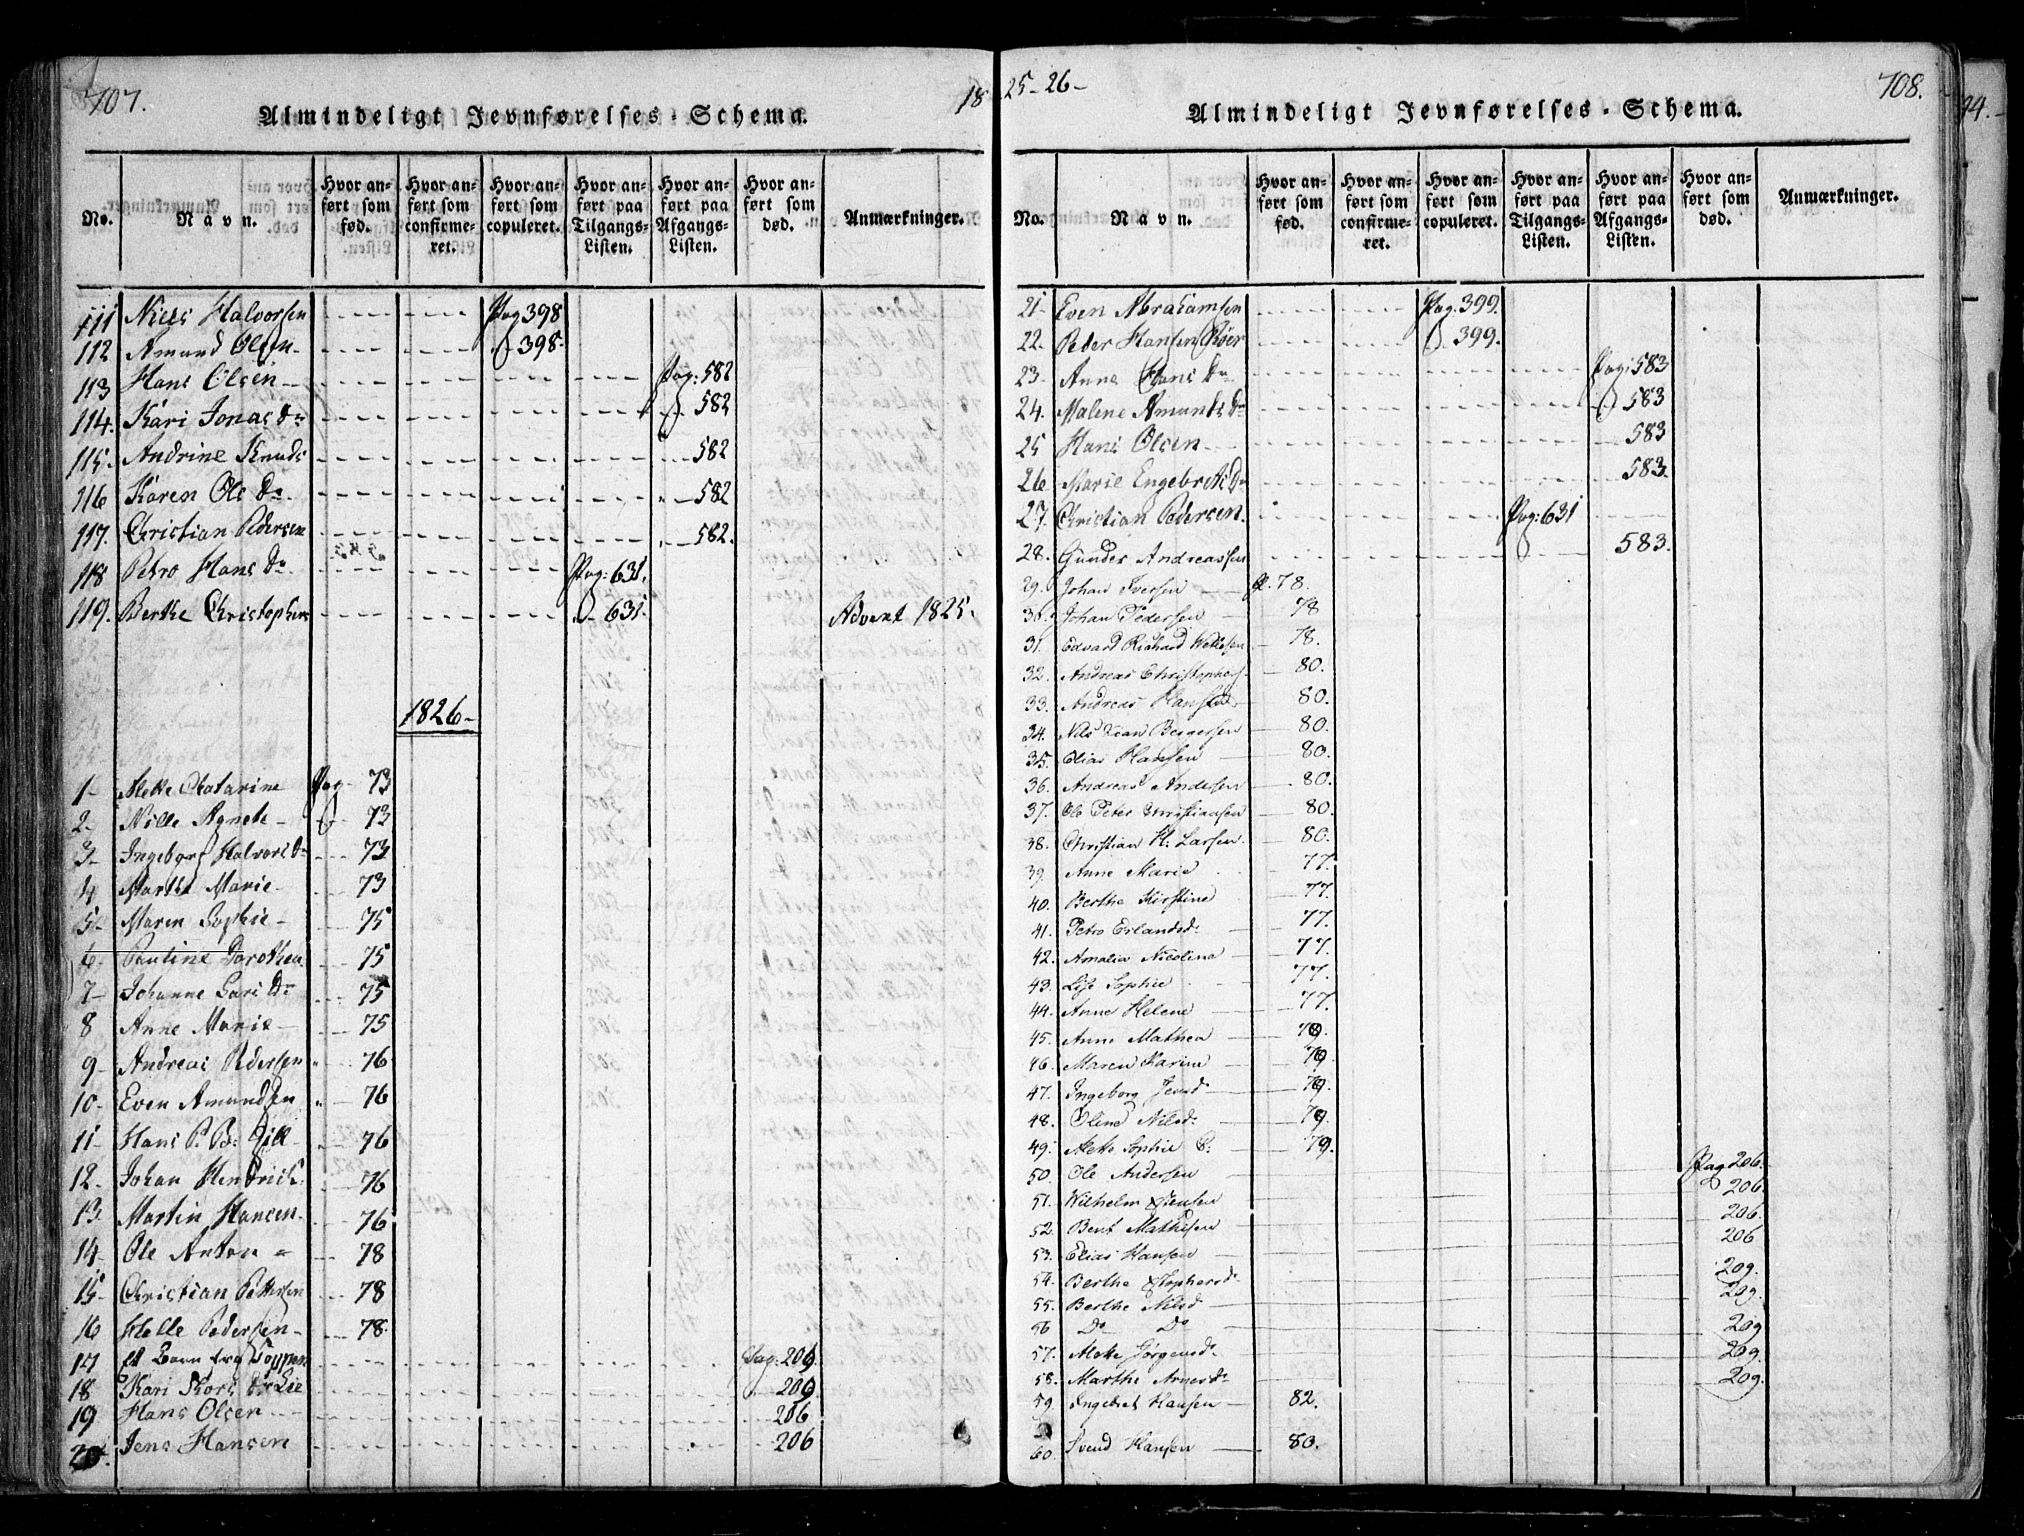 707.
Almindeligt Jevnførelses-Schema.
18
No.
Navn.
Hvor anført som fød.
Hvor anført som confirmeret.
Hvor anført som copuleret.
Hvor anført paa Tilgangs-Listen.
Hvor anført paa Afgangs-Listen.
Hvor anført som død.
Anmærkninger.
111 Niels Halvorsen Pag 398
112 Amund Olsen 398.
113 Hans Olsen Pag: 582
114. Kari Jonas Dr 582
115. Andrine Knuds 582
116 Karen Ols Dr. 582
117. Christian Pedersen 582.
118 Petro Hans Dr Pag: 631.
119. Berthe Christophers 631. Advent 1825.
1826
1 Mette Catarine Pag 73
2 Nille Agnete 73
3 Ingeborg Halvors Dr 73
4 Marthe Marie 73
5 Maren Sophie 75
6 Pauline Dorothea 75
7 Johanne Lars Dr 75
8 Anne Marie 75
9 Andreas Pedersen 76
10 Even Amundsen 76
11 Hans P. Gill 76
12. Johan Hendrich 76
13. Martin Hansen 76
14 Ole Anton 78
15 Christian Pettersen 78
16 Helle Pedersen 78.
17 Et Barn fra Pag: 206
18 Kari Lie 206
19 Hans Olsen 206
20. Jens Hansen 206
25-26
Almindeligt Jevnførelses-Schema.
708.
No.
Navn.
Hvor anført som fød.
Hvor anført som confirmeret.
Hvor anført som copuleret.
Hvor anført paa Tilgangs-Listen.
Hvor anført paa Afgangs-Listen.
Hvor anført som død.
Anmærkninger.
21 Even Abrahamsen Pag. 399.
22. Peder Hansen Röer 399.
23 Anne Hans Dr Pag: 583
24. Malene Amunds Dr 583
25 Hans Olsen 583
26 Marie Engebrets Dr 583.
27. Christian Pedersen. Pag: 631
28. Gunder Andreassen 583.
29. Johan Iversen P. 78.
30. Johan Pedersen 78
31. Edvard Richard 78.
32. Andreas Christophers 80.
33. Andreas 80.
34. Nils Bergersen 80.
35. Elias Hansen 80.
36. Andreas Andersen 80.
37. Ole Peter Christiansen 80.
38. Christian H. Larsen 80.
39. Anne Marie 77.
40. Berthe Kirstine 77.
41. Petro Erlandsd. 77.
42. Amalia Nicolina 77.
43. Lise Sophie 77.
44. Anne Helene 77.
45. Anne Mathea 79.
46. Maren Karine 79.
47. Ingeborg Jensd. 79.
48. Oline Nilsd. 79.
49. Mette Sophie C. 79.
50. Ole Andersen Pag 206.
51. Wilhelm Jensen 206.
52. Bent Mathisen 206.
53. Elias Hansen 206
54. Berthe Xstophersd. 209.
55. Berthe Nilsd 209.
56 Do Do 209
57. Mette Jörgensd. 209.
58. Marthe Arnesd. 209.
59 Engebret Hansen 82.
60. Svend Hansen 80.
94.